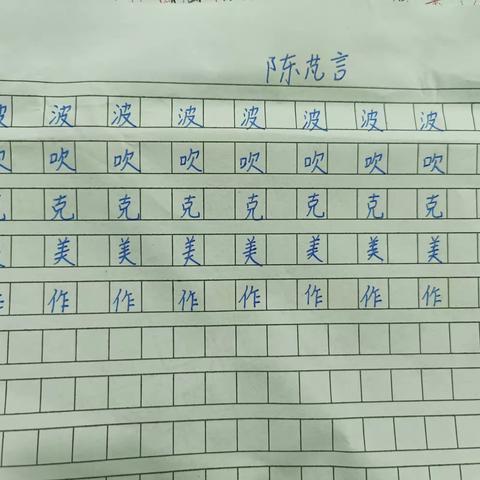 陈芃言
波 波 波 波 波 波 波 波
吹 吹 吹 吹 吹 吹 吹 吹
克 克 克 克 克 克 克 克
美 美 美 美 美 美 美
作 作 作 作 作 作 作 作